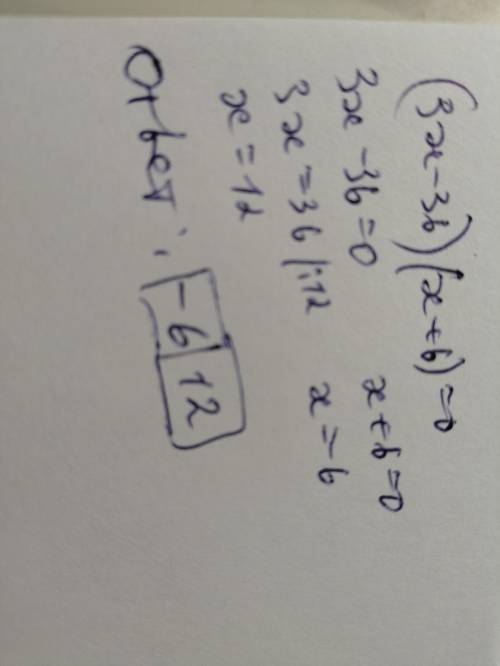 (3x-36)(x+6)=0
3x-36=0 x+6=0
3x=36 |:12 x=-6
x=12
Ответ: -6 12